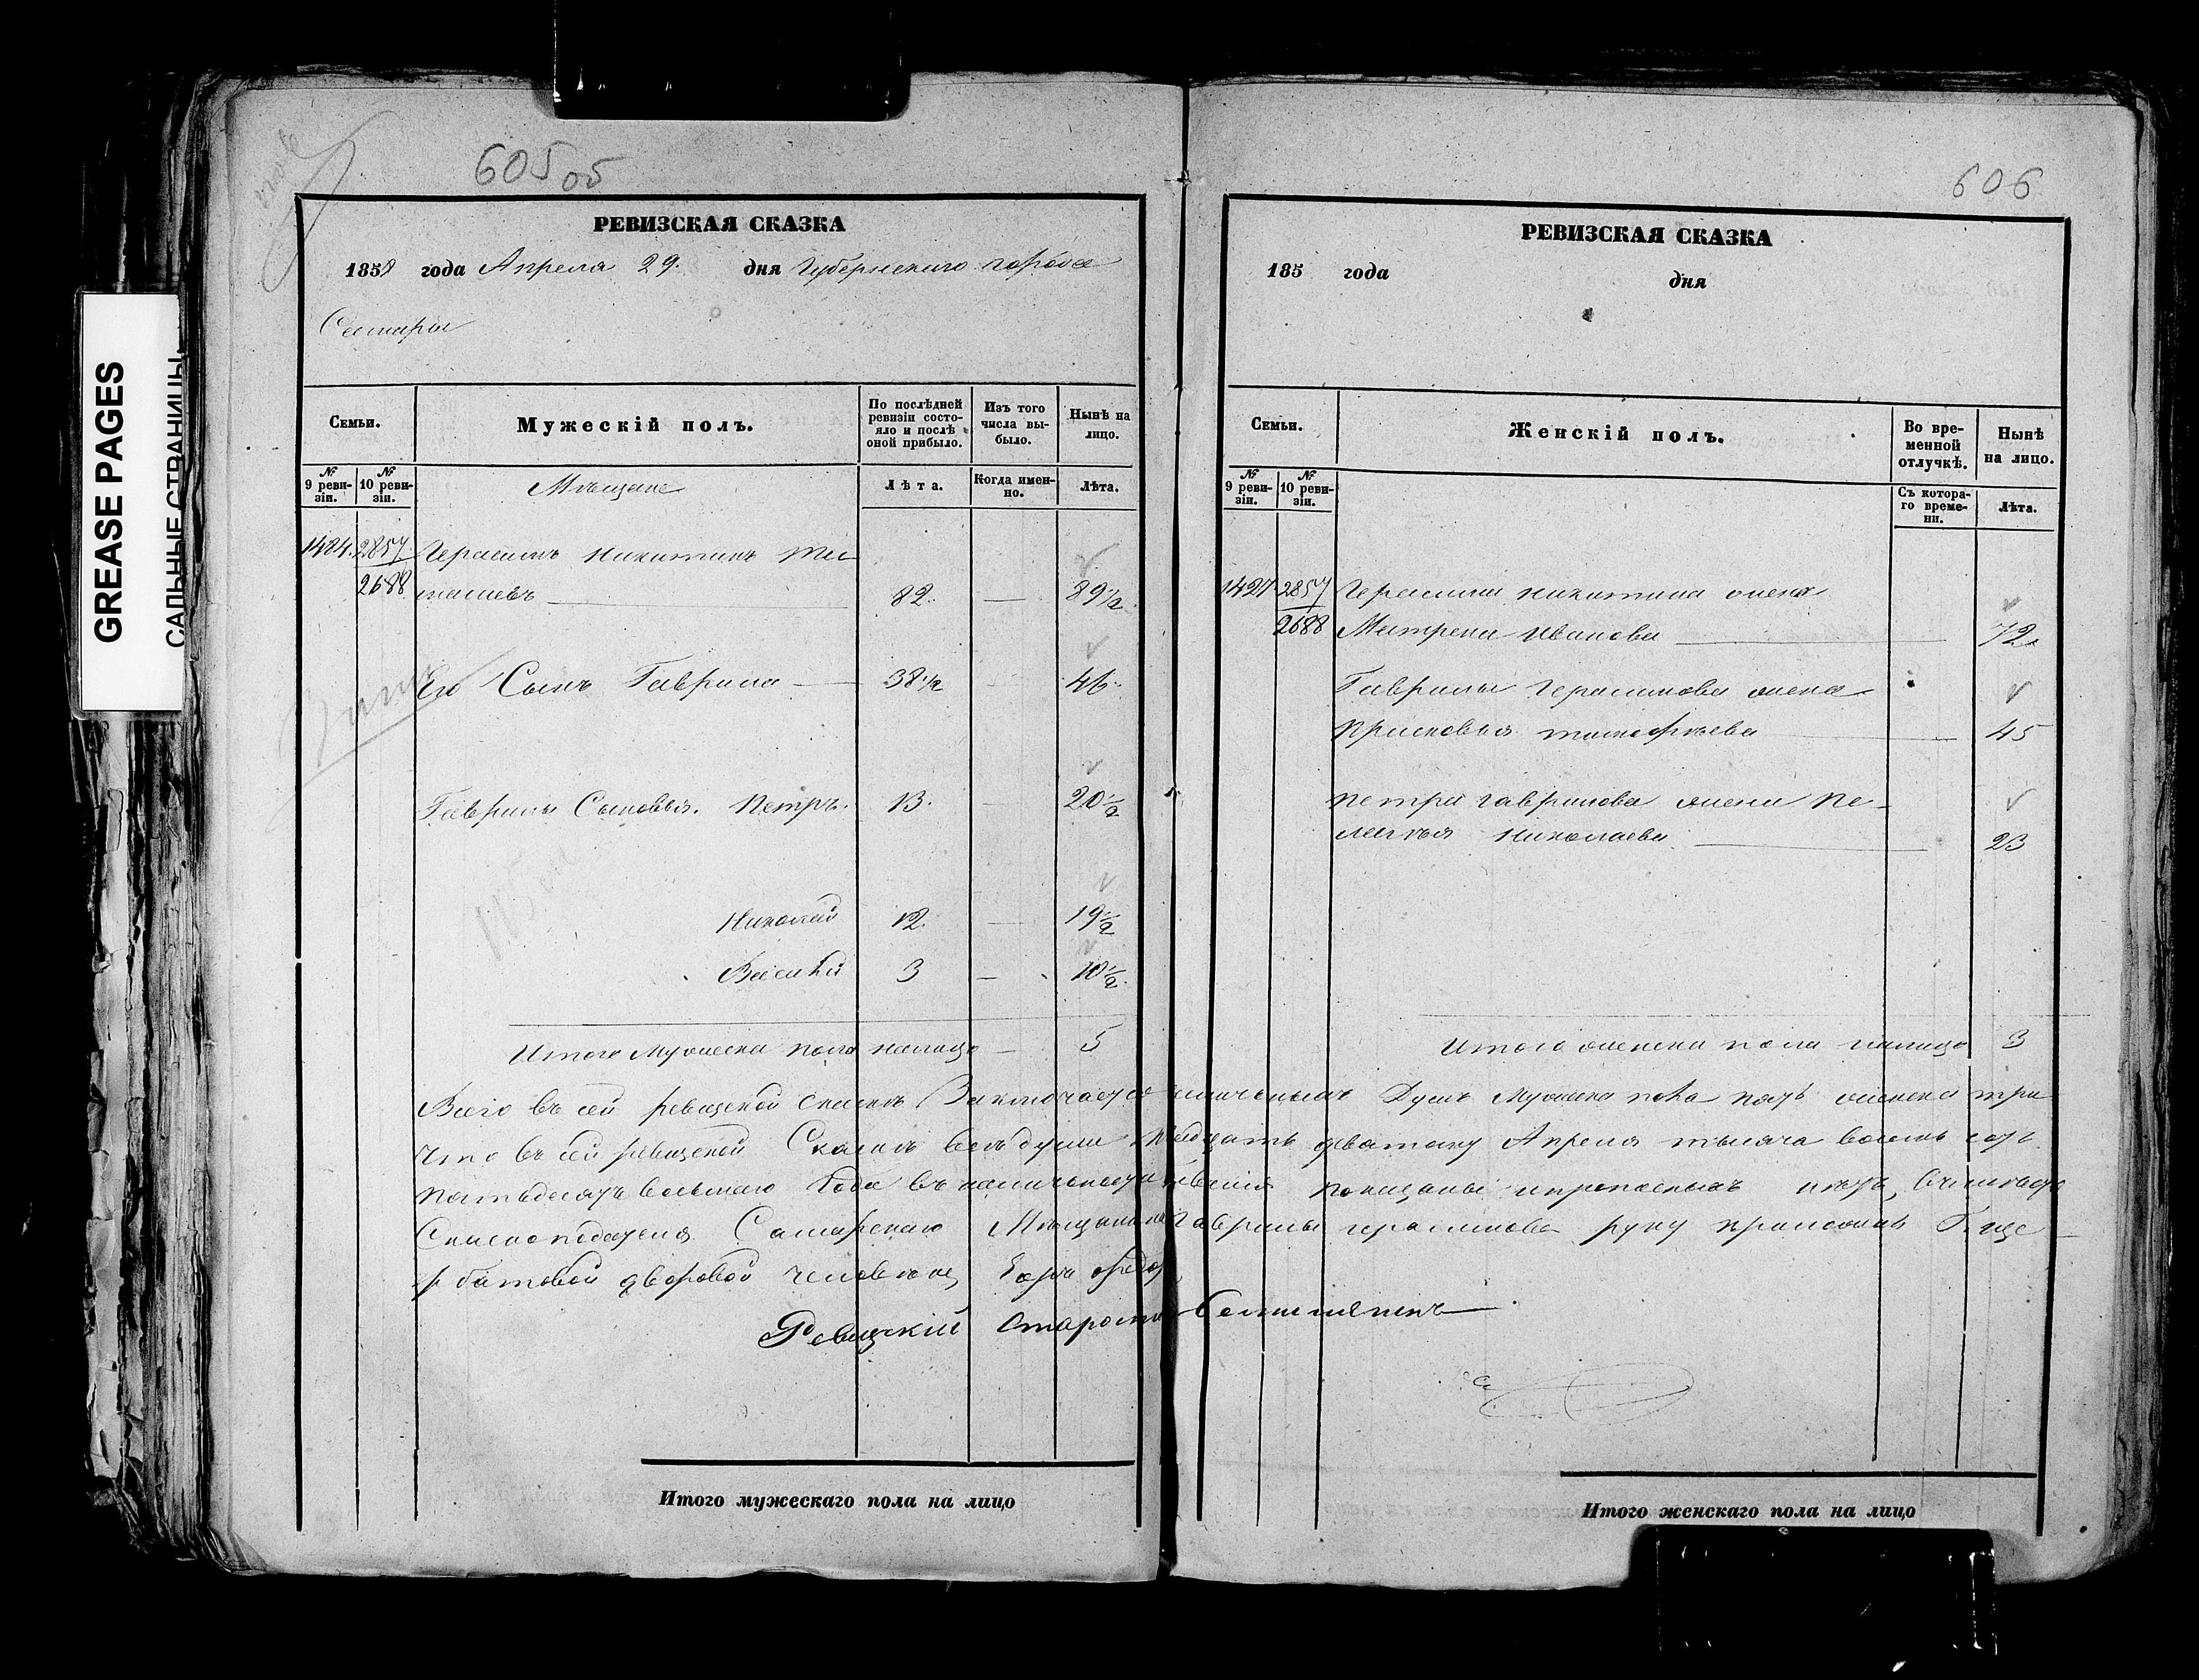 GREASE PAGES
САЛЬНЫЕ СТРАНИЦЫ
605 05
РЕВИЗСКАЯ СКАЗКА
1858 года Апреля 29. дня Губернскаго города
Самары
Семьи.
Мужескій полъ.
По послѣдней ревизіи состояло и послѣ оной прибыло.
Изъ того числа выбыло.
Нынѣ на лицо.
№ 9 ревизіи.
№ 10 ревизіи.
Мѣщане
Лѣта.
Когда именно.
Лѣта.
1484. 2857 Герасимъ Никитинъ
2688 82. — 89½
Его Сынъ Гаврила — 38½ 46.
Гаврилы Сыновья. Петръ. 13. 20½
Николай 12. — 19½
Василий 3 — 10½
Итого Мужеска пола налицо — 5
606
РЕВИЗСКАЯ СКАЗКА
185 года дня
Семьи.
Женскій полъ.
Во временной отлучкѣ.
Нынѣ на лицо.
№ 9 ревизіи.
№ 10 ревизіи.
Съ котораго времени.
Лѣта.
2857 Герасима Никитина жена
2688 Матрена Иванова — 72.
Гаврилы Герасимова жена
Прасковья Тимофѣева — 45
Петра Гаврилова жена Пе-
лагея Николаева — 23
Итого женска пола налицо 3
Всего въ сей ревизской сказкѣ Заключается наличныхъ Душъ Мужеска пола пять женска три
Что въ сей ревизской Сказкѣ всѣ души двадцать девятому Апреля тысяча восемь сотъ
пятьдесятъ восьмаго Года въ наличности показаны и прописныхъ нѣтъ,
Самарскаго Мѣщанина Гаврилы Герасимова руку приложилъ
дворовой человекъ Егоръ
Ревизский Староста
Итого мужескаго пола на лицо
Итого женскаго пола на лицо